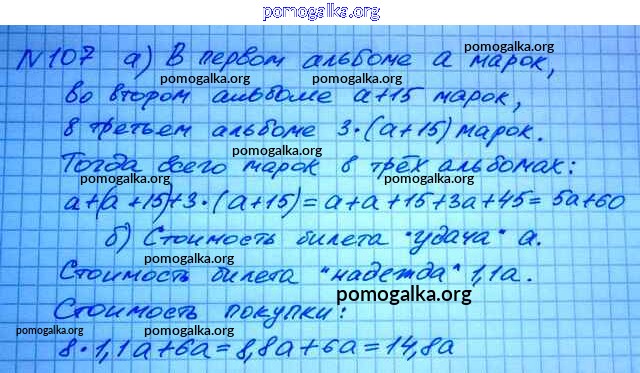 pomogalka.org
№107 а) В первом альбоме а марок,
pomogalka.org pomogalka.org
во втором альбоме а+15 марок,
pomogalka.org pomogalka.org
в третьем альбоме 3·(а+15) марок.
pomogalka.org
Тогда всего марок в трёх альбомах:
pomogalka.org pomogalka.org
а+(а+15)+3·(а+15)=а+а+15+3а+45=5а+60
б) Стоимость билета "удача" а.
pomogalka.org
Стоимость билета "надежда" 1,1а.
pomogalka.org
Стоимость покупки:
pomogalka.org pomogalka.org
8·1,1а+6а=8,8а+6а=14,8а